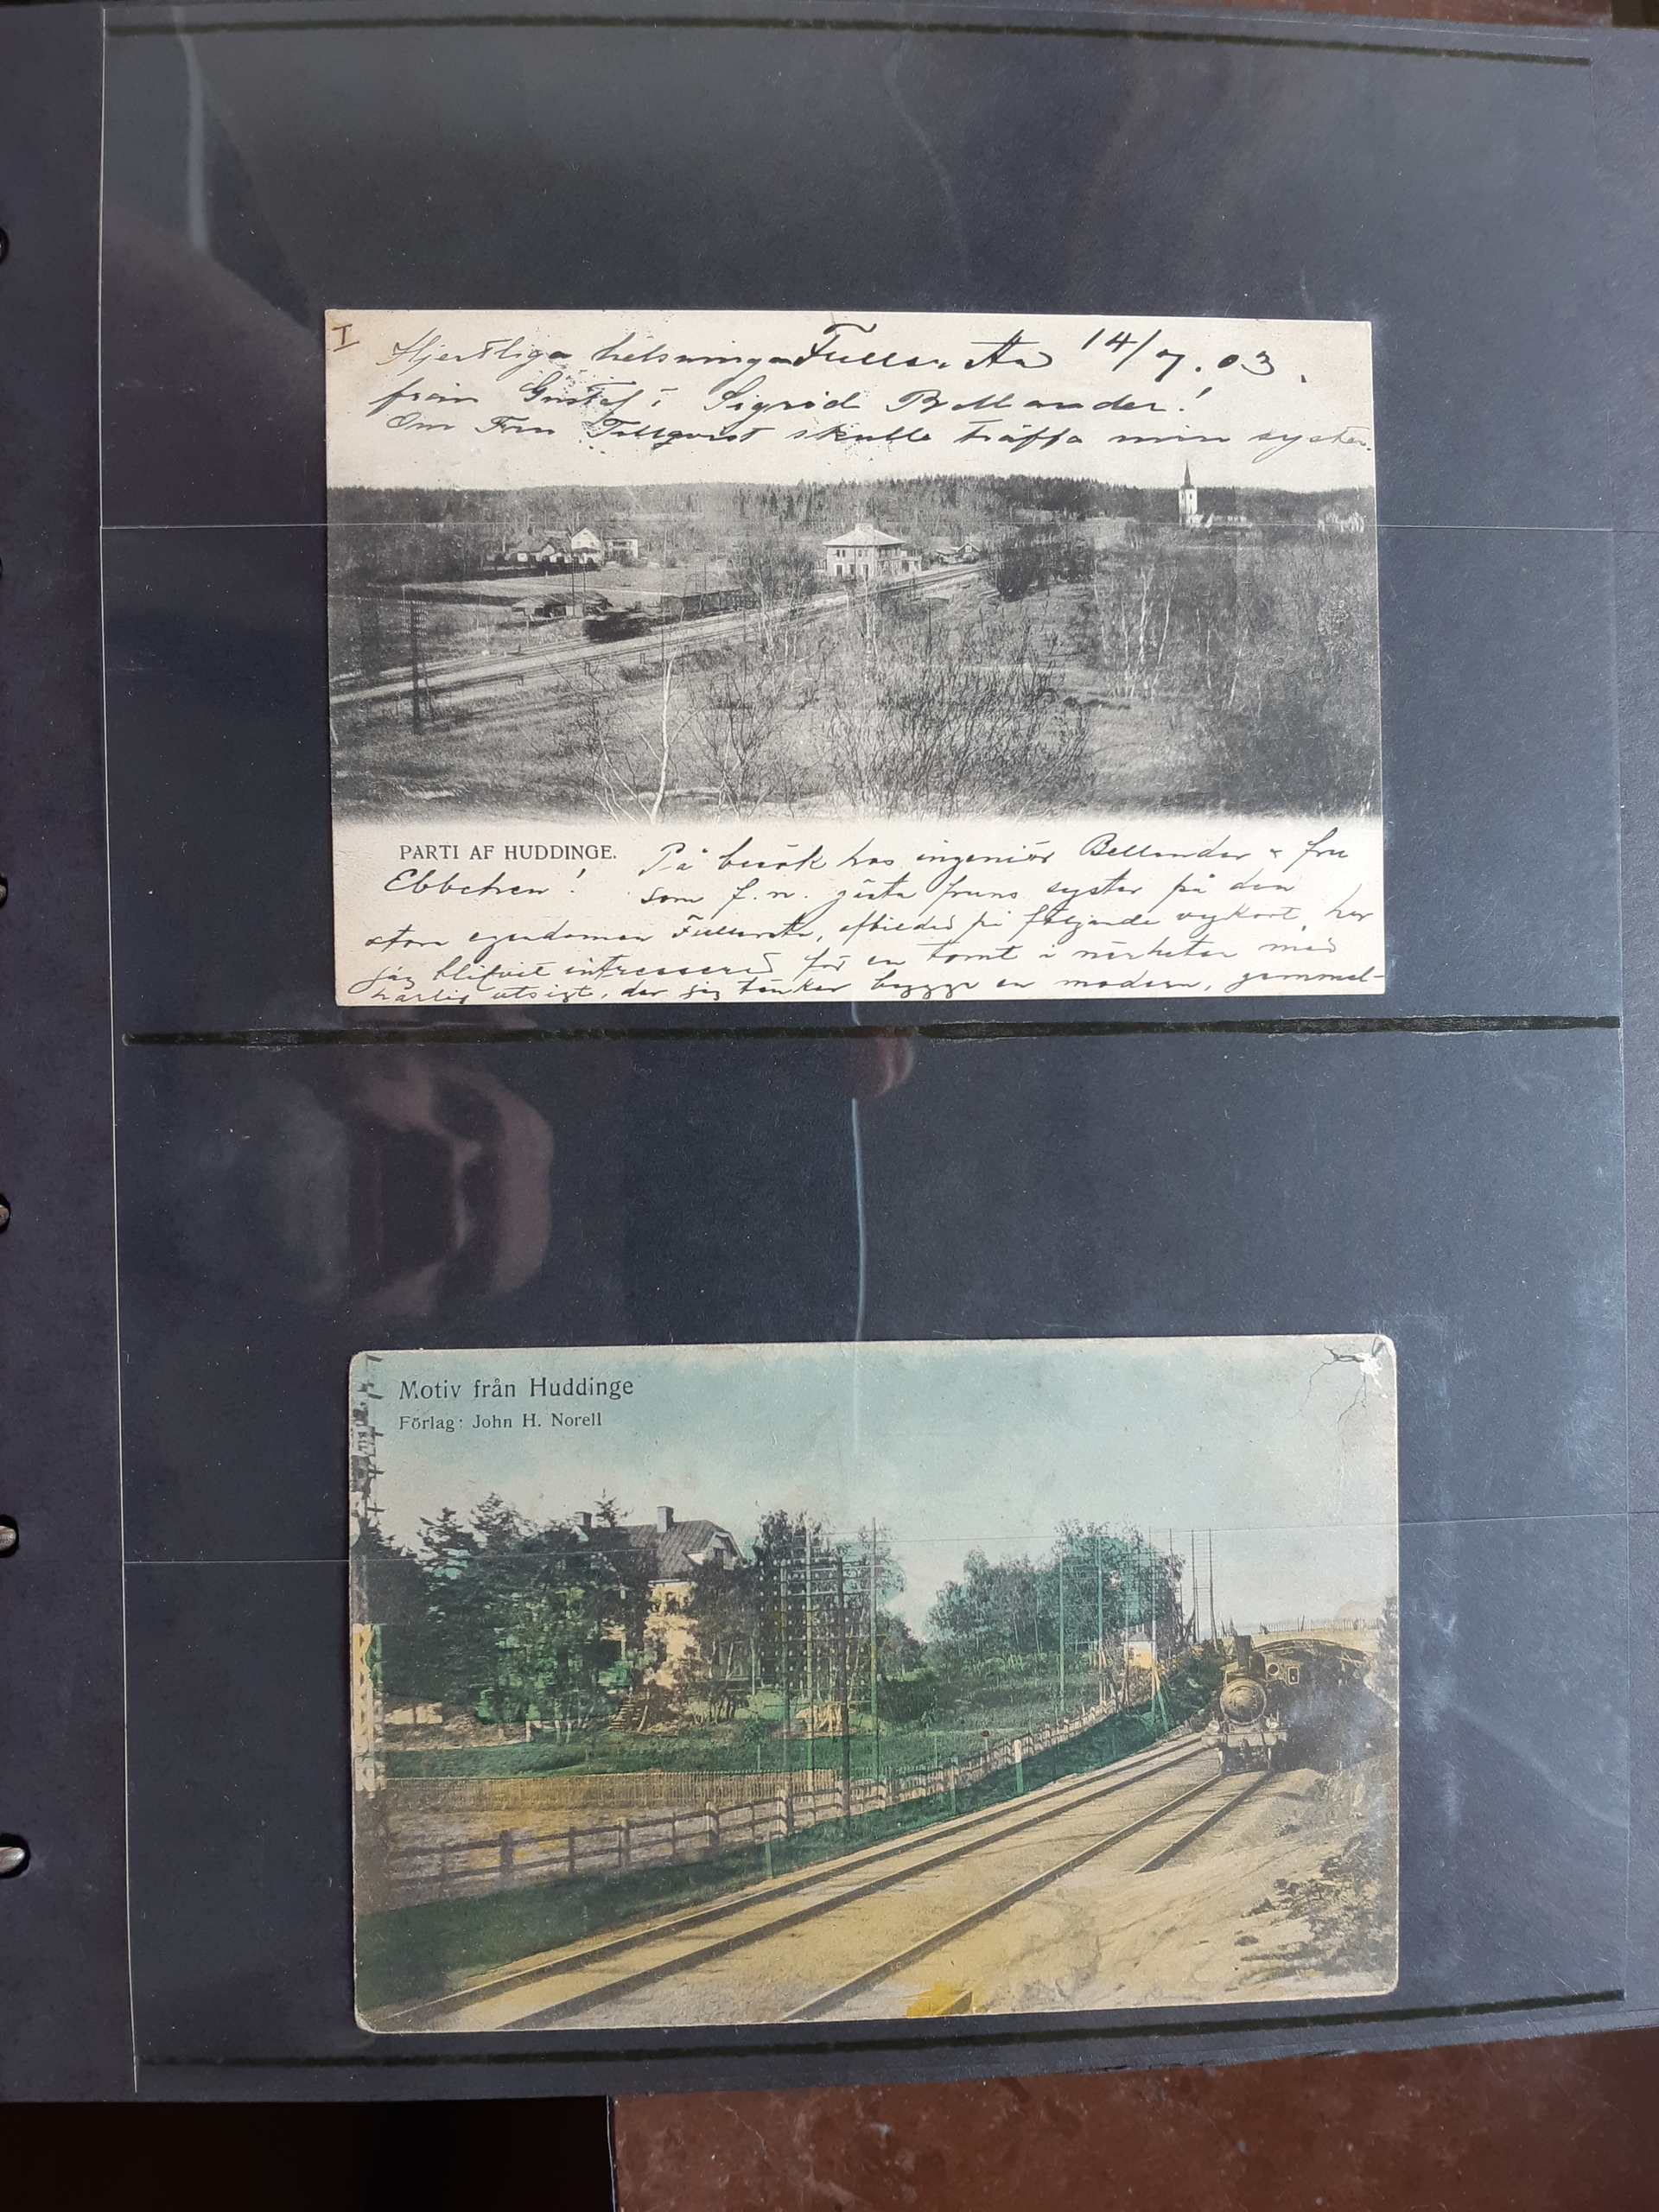 I
Hjertliga helsninga Fullersta 14/7.03.
från Gustaf & Sigrid Bellander!
Om Fru Tillqvist skulle träffa min syster
PARTI AF HUDDINGE. På besök hos ingeniör Bellander & fru
Ebbchen! som f.n. gästa fruns syster på den
stora egendomen Fullersta, afbildad på följande vykort, har
jag blifvit intresserad för en tomt i närheten med
härlig utsigt, der jag tänker bygga en modern, gammel-
Motiv från Huddinge
Förlag: John H. Norell